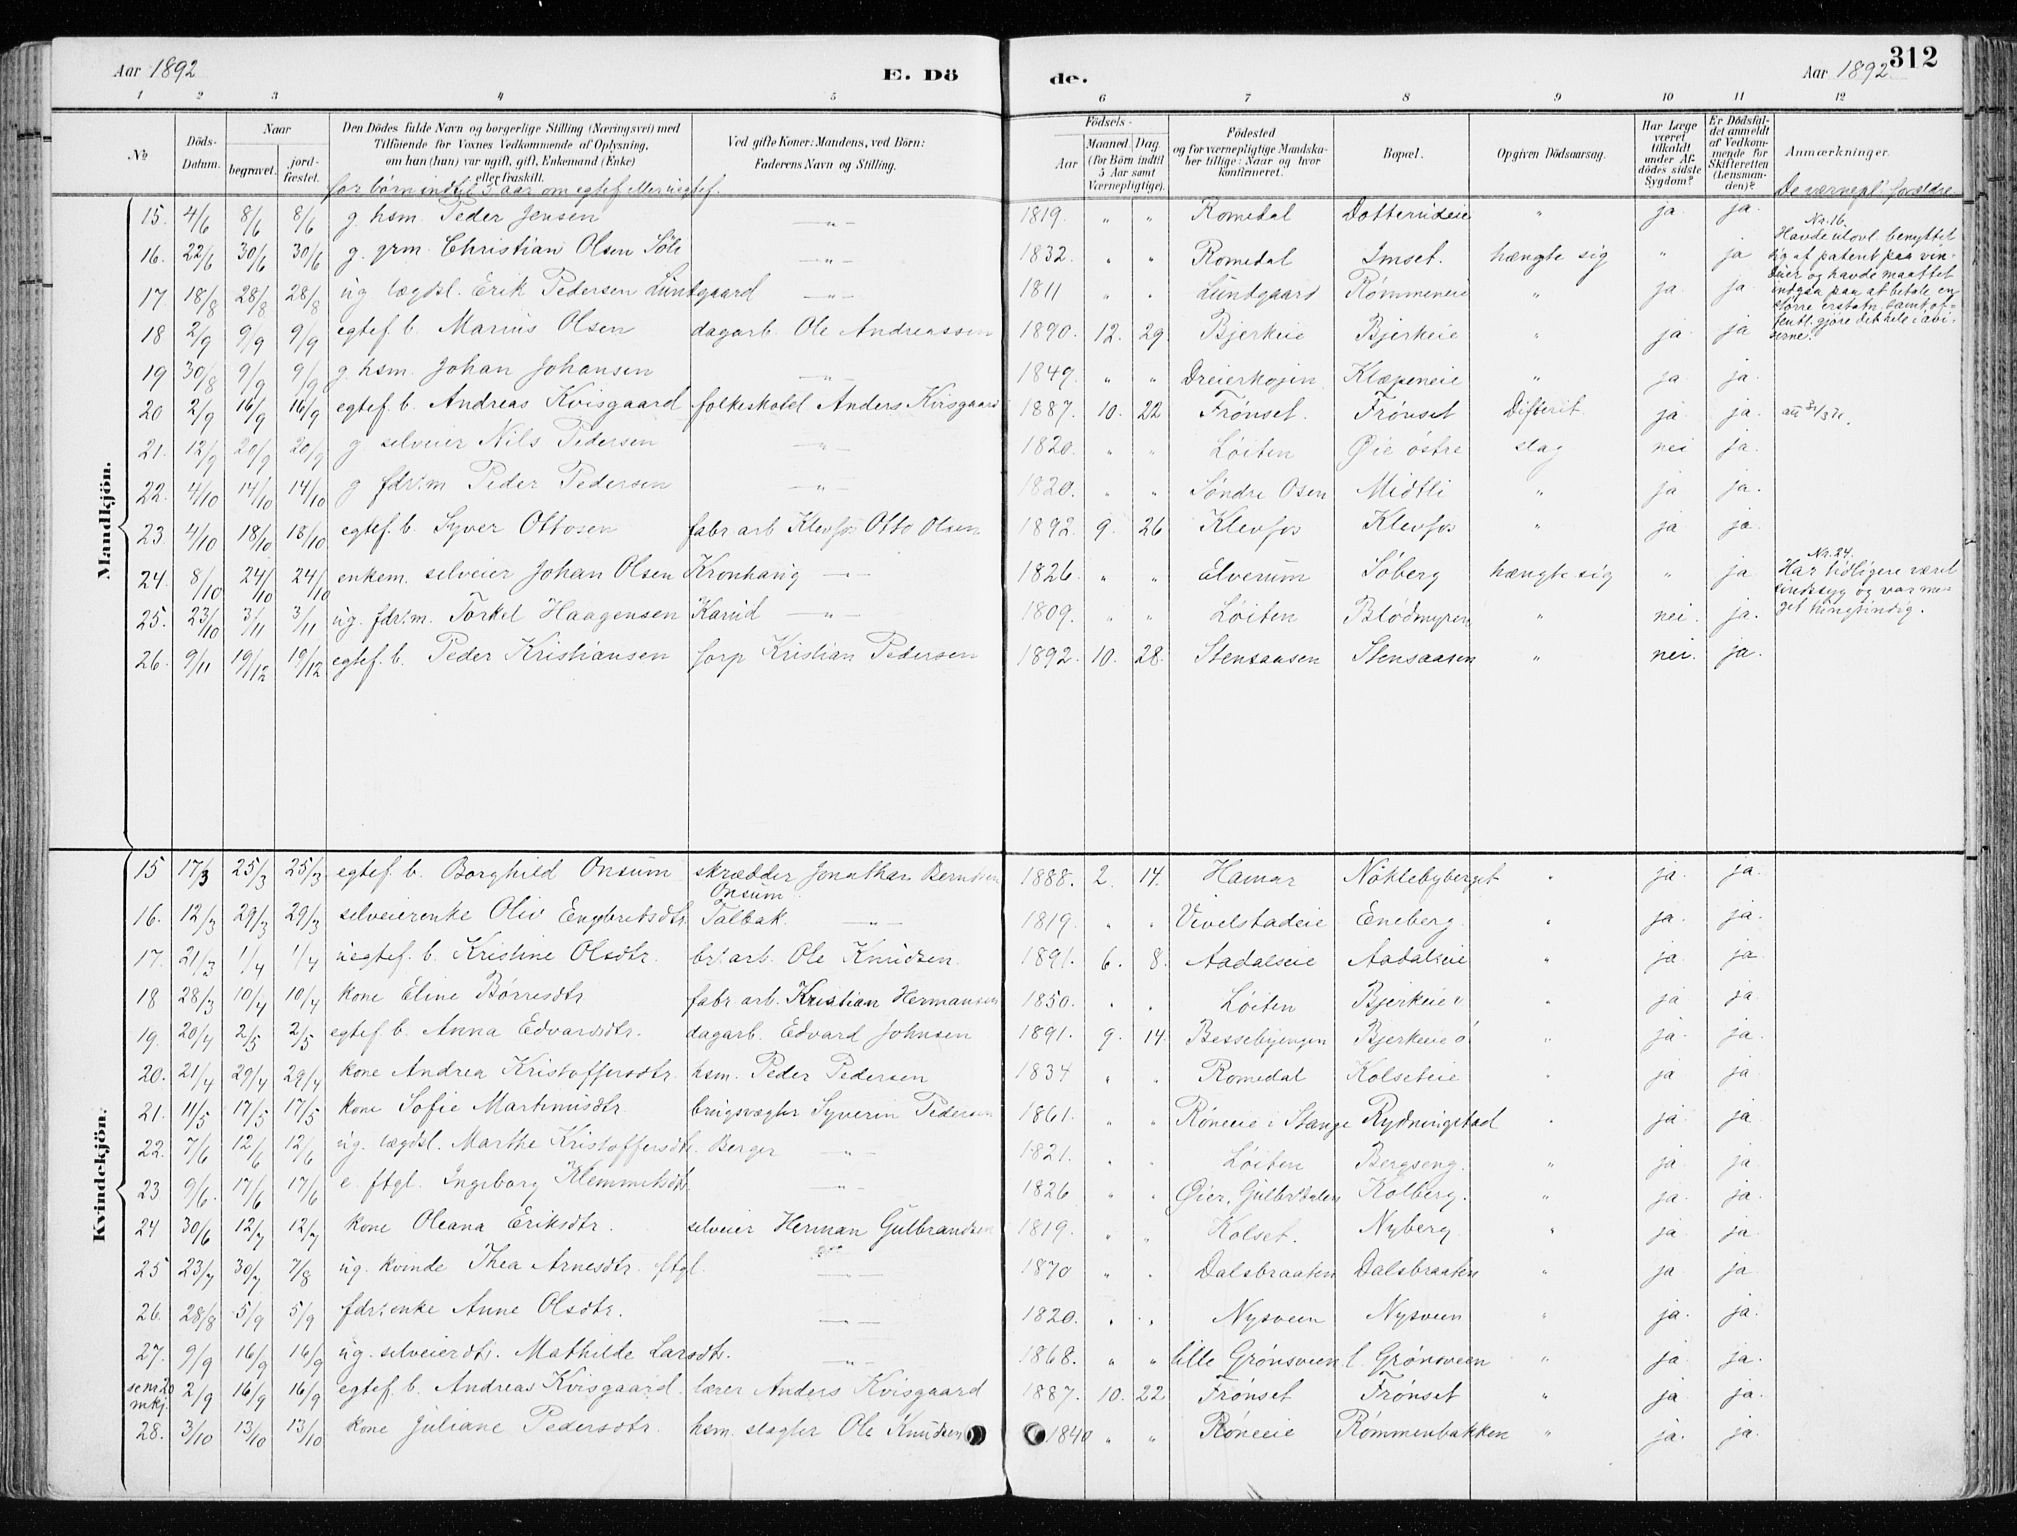 Aar 1892 E. Dö de. Aar 1892 312
1 2 3 4 5 6 7 8 9 10 11 12
№ Döds-Datum. Naar begravet. jordfæstet. Den Dödes fulde Navn og borgerlige Stilling (Næringsvei) med Tilföiende for Voxnes Vedkommende af Oplysning, om han (hun) var ugift, gift, Enkemand (Enke) eller fraskilt. Ved gifte Koner: Mandens, ved Börn: Faderens Navn og Stilling. Födsels- Aar Maaned. Dag. (for Börn indtil 5 Aar samt Værnepligtige). Födested og for værnepligtige Mandskaber tillige: Naar og hvor konfirmeret. Bopæl. Opgiven Dödsaarsag. Har Læge været tilkaldt under Afdödes sidste Sygdom? Er Dödsfaldet anmeldt af Vedkommende for Skifteretten (Lensmanden)? Anmærkninger.
for börn indtil 5 aar om egtef. eller uegtef. De værnepl. forældre
Mandkjön.
15. 4/6 8/6 8/6 g. hsm. Peder Jensen —"— 1819. " " Romedal Dotterudeie " ja. ja.
16. 22/6 30/6 30/6 g. grm. Christian Olsen Söli —"— 1832. " " Romedal Imset. hængte sig " ja
Nr. 16. Havde ulovl. benyttet sig af patent paa vinduer og havde maattet indgaa paa at betale en större erstatn. samt offentl. gjöre det hele i aviserne.
17 18/8 28/8 28/8 ug lægdsl. Erik Pedersen Lundgaard —"— 1811 " " Lundgaard Rømmeneie " ja ja.
18 2/9 9/9 9/9 egtef b. Marius Olsen dagarb. Ole Andreassen 1890. 12. 29. Bjerkeie Bjerkeie " ja ja
19 30/8 9/9 9/9 g. hsm. Johan Johansen —"— 1849. " " Dreierkojen Klæpeneie " ja. ja.
20 2/9 16/9 16/9 egtef. b. Andreas Kvisgaard folkeskolel Anders Kvisgaard 1887. 10. 22 Frönset. Frönset Difterit. ja ja.
21. 12/9 20/9 20/9 g selveier Nils Pedersen —"— 1820. " " Löiten Øie östre slag nei ja.
22. 4/10 14/10 14/10 g fdr.m Peder Pedersen —"— 1820. " " Söndre Osen Midtli " ja ja.
23. 4/10 18/10 18/10 egtef. b. Syver Ottosen fabr arb Klevfos Otto Olsen 1892. 9. 26 Klevfos Klevfos " ja ja
24. 8/10 24/10 24/10 enkem. selveier Johan Olsen Kronhaug —"— 1826. " " Elverum Söberg hængte sig " ja
Nr. 24. Har tidligere været sindssyg og var meget tungsindig.
25. 23/10 3/11 3/11 ug. fdr.m. Torkel Haagensen Karud —"— 1809. " " Löiten Blödmyren " nei. ja.
26. 9/11 19/12 19/12 egtef. b. Peder Kristiansen forp Kristian Pedersen 1892. 10. 28. Stensaasen Stensaasen " nei. ja.
Kvindekjön.
15 17/3 25/3 25/3 egtef. b. Borghild Onsum skrædder Jonathan Berntsen Onsum. 1888. 2. 14. Hamar Nöklebyberget " ja. ja.
16. 12/3 29/3 29/3 selveierenke Oliv Engbretsdtr Talbak. —"— 1819. " " Vivelstadeie Eneberg. " ja. ja.
17. 21/3 1/4 1/4 uegtef. b. Kristine Olsdtr. br.arb. Ole Knudsen. 1891. 6. 8. Aadalseie Aadalseie " ja ja
18 28/3 10/4 10/4 kone Eline Børresdtr fabr arb. Kristian Hermansen 1850. " " Löiten Bjerkeie v " ja ja
19. 20/4 2/5 2/5 egtef b. Anna Edvardsdtr. dagarb. Edvard Johnsen 1891. 9. 14. Bessebyengen Bjerkeie ö " ja. ja.
20. 21/4 29/4 29/4 kone Andrea Kristoffersdtr. hsm. Peder Pedersen 1834 " " Romedal Kolseteie " ja ja
21. 11/5 17/5 17/5 kone Sofie Martinusdtr brugsvægter Syverin Pedersen 1861. " " Röneeie i Stange Rydningstad " ja ja
22. 7/6 12/6 12/6 ug. lægdsl. Marthe Kristoffersdtr. Berger —"— 1821. " " Löiten Bergseng. " ja. ja.
23 9/6. 17/6 17/6 e. ftgl. Ingeborg Klemmetsdtr —"— 1826 " " Øier, Gulbrdalen Kolberg. " ja. ja.
24 30/6 12/7 12/7 kone Oleana Eriksdtr. selveier Herman Gulbrandsen 1819. " " Kolset. Nyberg. " ja ja.
25 23/7 30/7 7/8 ug. kvinde Thea Arnesdtr. ftgl. —"— 1870 " " Dalsbraaten Dalsbraaten " ja ja
26. 28/8 5/9 5/9 fdr.enke Anne Olsdtr. —"— 1820. " " Nysveen Nysveen " ja. ja.
27. 9/9 16/9 16/9 ug. selveierdtr. Mathilde Larsdtr. —"— 1868. " " lille Grönsveen l. Grönsveen " ja. ja.
se nr 20 mkj. 2/9 16/9 16/9 egtef b. Andreas Kvisgaard. lærer Anders Kvisgaard 1887. 10. 22 Frönset Frönset " ja ja.
28. 3/10 13/10 13/10 kone Juliane Pedersdtr. hsm. slagter Ole Knudsen 1840 " " Röneeie Römmenbakken " ja. ja.